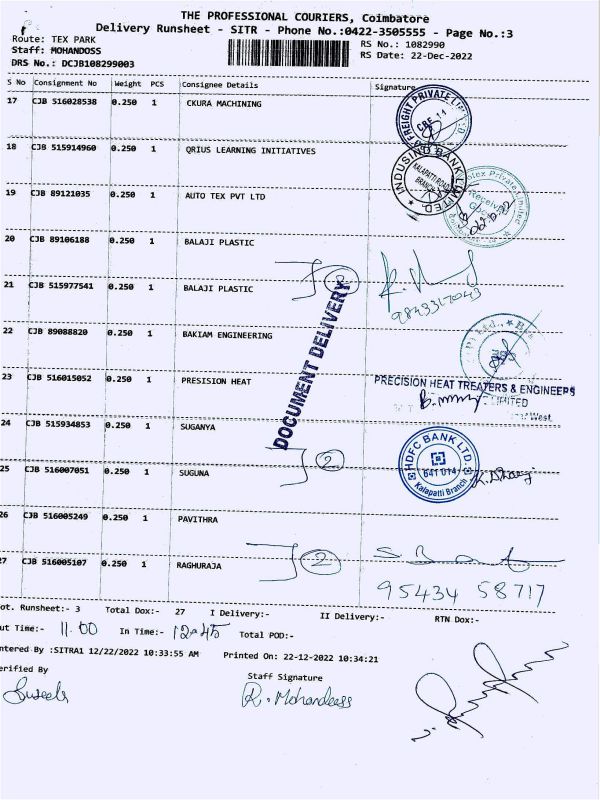 THE PROFESSIONAL COURIERS, Coimbatore
Delivery Runsheet - SITR - Phone No.:0422-3505555 - Page No.:3
Route: TEX PARK
RS No.: 1082990
Staff: MOHANDOSS
RS Date: 22-Dec-2022
DRS No.: DCJB108299003
S No Consignment No Weight PCS Consignee Details Signature
17 CJB 516028538 0.250 1 CKURA MACHINING
FREIGHT PRIVATE
18 CJB 515914960 0.250 1 QRIUS LEARNING INITIATIVES
INDUSIND BANK LIMITED
KALAPATTI ROAD
BRANCH
19 CJB 89121035 0.250 1 AUTO TEX PVT LTD
Private Limited
20 CJB 89106188 0.250 1 BALAJI PLASTIC
21 CJB 515977541 0.250 1 BALAJI PLASTIC
2
9843317043
DOCUMENT DELIVERY
22 CJB 89088820 0.250 1 BAKIAM ENGINEERING
23 CJB 516015052 0.250 1 PRESISION HEAT
PRECISION HEAT TREATERS & ENGINEERS
LIMITED
West.
24 CJB 515934853 0.250 1 SUGANYA
HDFC BANK LTD.
641 014
Kalapatti Branch
2
25 CJB 516007051 0.250 1 SUGUNA
26 CJB 516005249 0.250 1 PAVITHRA
27 CJB 516005107 0.250 1 RAGHURAJA
2
95434 58717
ot. Runsheet:- 3 Total Dox:- 27 I Delivery:- II Delivery:- RTN Dox:-
ut Time:- 11.00 In Time:- 12.45 Total POD:-
ntered By :SITRA1 12/22/2022 10:33:55 AM Printed On: 22-12-2022 10:34:21
erified By
Staff Signature
R. Mohandoss